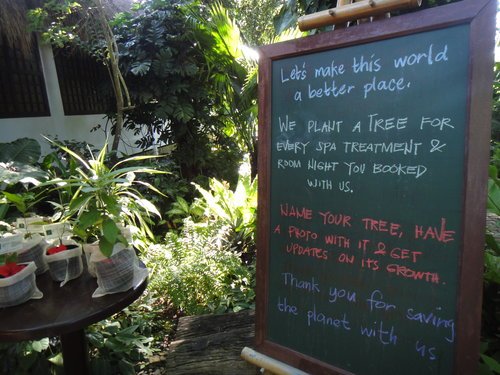 Let's make this world
a better place.
WE PLANT A TREE FOR
EVERY SPA TREATMENT &
ROOM NIGHT YOU BOOKED
WITH US.
NAME YOUR TREE, HAVE
A PHOTO WITH IT & GET
UPDATES ON ITS GROWTH.
Thank you for saving
the planet with us